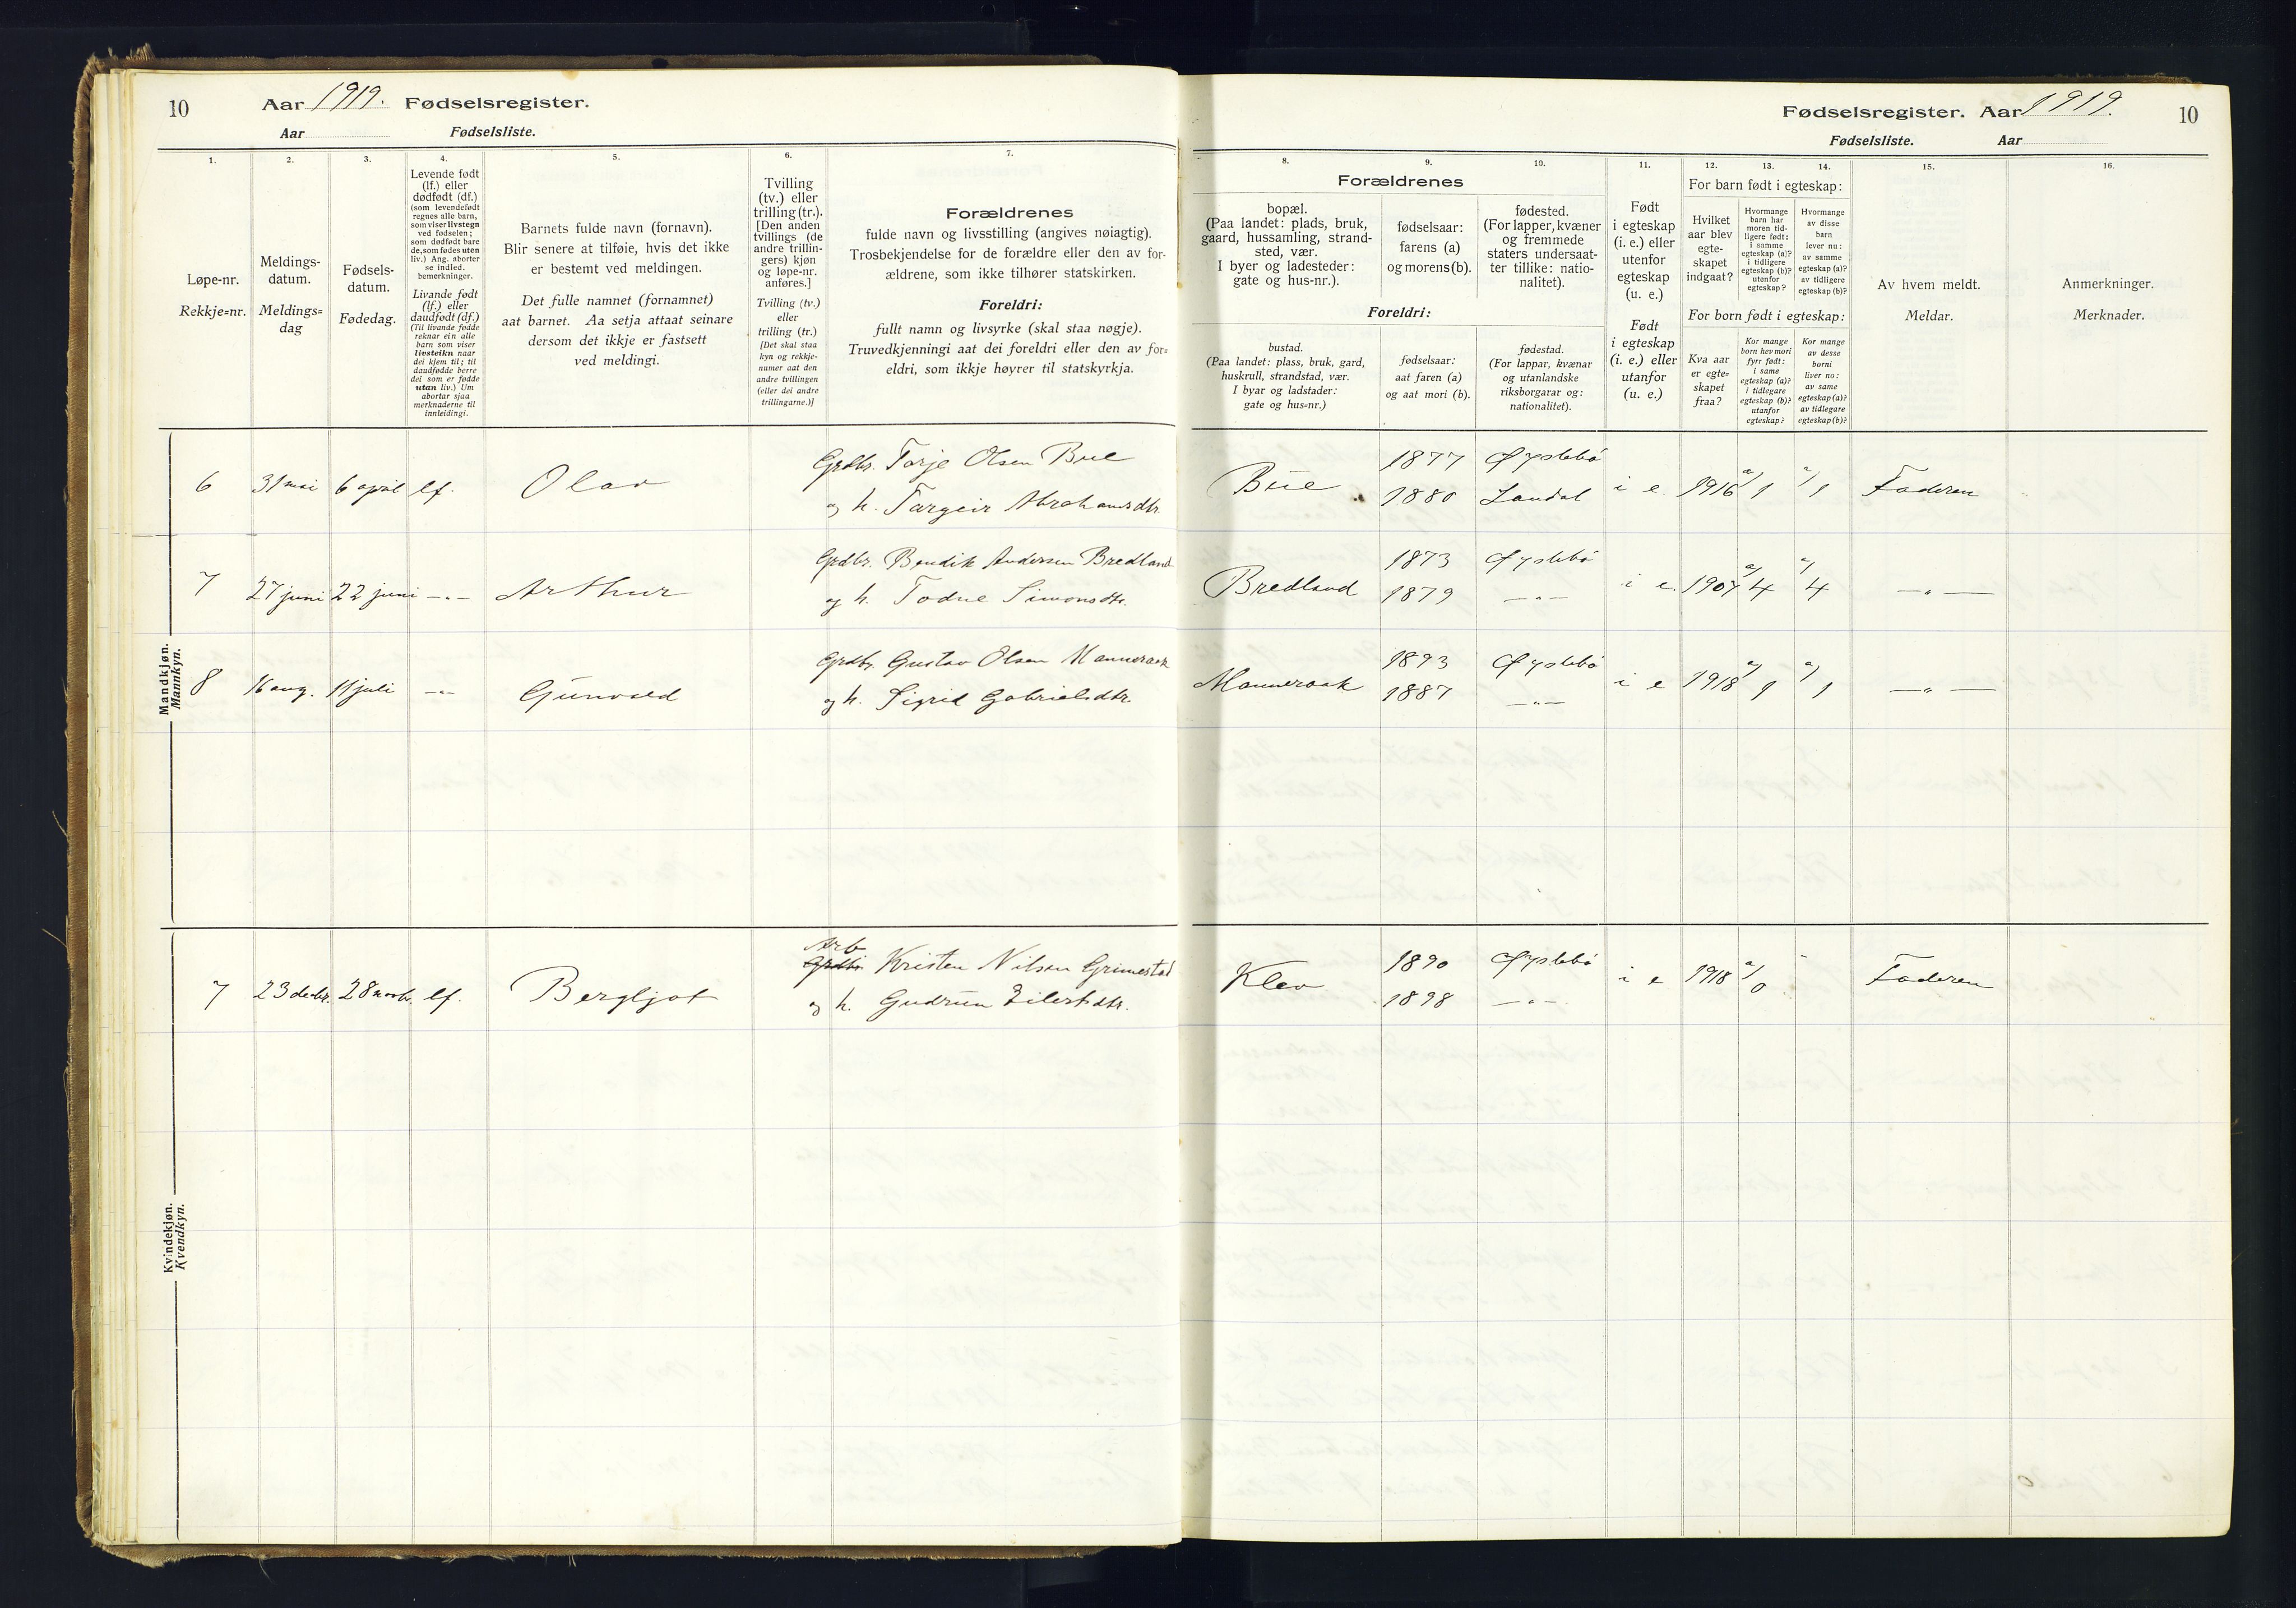 10
Aar 1919. Fødselsregister.
Aar Fødselsliste.
Fødselsregister. Aar 1919.
10
Fødselsliste. Aar
1.
Løpe-nr.
Rekkje=nr.
2.
Meldings-
datum.
Meldings=
dag
3.
Fødsels-
datum.
Fødedag.
4.
Levende født
(lf.) eller
dødfødt (df.)
(som levendefødt
regnes alle barn,
som viser livstegn
ved fødselen;
som dødfødt bare
de, som fødes uten
liv.) Ang. aborter
se indled.
bemerkninger.
Livande født
(lf.) eller
daudfødt (df.)
(Til livande fødde
reknar ein alle
barn som viser
livsteikn naar
dei kjem til; til
daudfødde berre
dei som er fødde
utan liv.) Um
abortar sjaa
merknaderne til
innleidingi.
5.
Barnets fulde navn (fornavn).
Blir senere at tilføie, hvis det ikke
er bestemt ved meldingen.
Det fulle namnet (fornamnet)
aat barnet. Aa setja attaat seinare
dersom det ikkje er fastsett
ved meldingi.
6.
Tvilling
(tv.) eller
trilling (tr.).
[Den anden
tvillings (de
andre trillin-
gers) kjøn
og løpe-nr.
anføres.]
Tvilling (tv.)
eller
trilling (tr.)
[Det skal staa
kyn og rekkje-
numer aat den
andre tvillingen
(eller dei andre
trillingarne.)]
7.
Forældrenes
fulde navn og livsstilling (angives nøiagtig).
Trosbekjendelse for de forældre eller den av for-
ældrene, som ikke tilhører statskirken.
Foreldri:
fullt namn og livsyrke (skal staa nøgje).
Truvedkjenningi aat dei foreldri eller den av for=
eldri, som ikkje høyrer til statskyrkja.
8. 9. 10.
Forældrenes
bopæl.
(Paa landet: plads, bruk,
gaard, hussamling, strand-
sted, vær.
I byer og ladesteder:
gate og hus-nr.).
fødselsaar:
farens (a)
og morens (b).
fødested.
(For lapper, kvæner
og fremmede
staters undersaat-
ter tillike: natio-
nalitet).
Foreldri:
bustad.
(Paa landet: plass, bruk, gard,
huskrull, strandstad, vær.
I byar og ladstader:
gate og hus=nr.)
fødselsaar:
aat faren (a)
og aat mori (b).
fødestad.
(For lappar, kvænar
og utanlandske
riksborgarar og:
nationalitet).
11.
Født
i egteskap
(i. e.) eller
utenfor
egteskap
(u. e.)
Født
i egteskap
(i. e.) eller
utanfor
(u. e.)
12. 13. 14.
For barn født i egteskap:
Hvilket
aar blev
egte-
skapet
indgaat?
Hvormange
barn har
moren tid-
ligere født:
i samme
egteskap (a)?
i tidligere
egteskap (b)?
utenfor
egteskap?
Hvormange
av disse
barn
lever nu:
av samme
egteskap (a)?
av tidligere
egteskap (b)?
For born født i egteskap:
Kva aar
er egte=
skapet
fraa?
Kor mange
born hev mori
fyrr født:
i same
egteskap (a)?
i tidlegare
egteskap (b)?
utanfor
egteskap?
Kor mange
av desse
borni
liver no:
av same
egteskap (a)?
av tidlegare
egteskap (b)?
15.
Av hvem meldt.
Meldar.
16.
Anmerkninger.
Merknader.
Mandkjøn.
Mannkyn.
6 31 mai 6 april lf. Olav Grdbr. Tarje Olsen Bue Bue 1877 Øyslebø i e. 1916 a/1 a/1 Faderen
og h. Targeir Abrahamsdtr. 1880 Laudal
7 27 juni 22 juni —„— Arthur Grdbr. Bendik Andersen Bredland Bredland 1873 Øyslebø i e. 1907 a/4 a/4 —„—
og h. Todne Simonsdtr. 1879 —„—
8 16 aug. 11 juli —„— Gunvald Grdbr. Gustav Olsen Manneraak Manneraak 1893 Øyslebø i e 1918 a/1 a/1 —„—
og h. Sigrid Gabrielsdtr. 1887 —„—
Kvindekjøn.
Kvendkyn.
Arb
7 23 decbr. 28 novbr. lf. Bergljot Grdbr. Kristen Nilsen Grimestad Klev 1890 Øyslebø i e 1918 a/0 - Faderen
og h. Gudrun Eilertsdtr. 1898 —„—